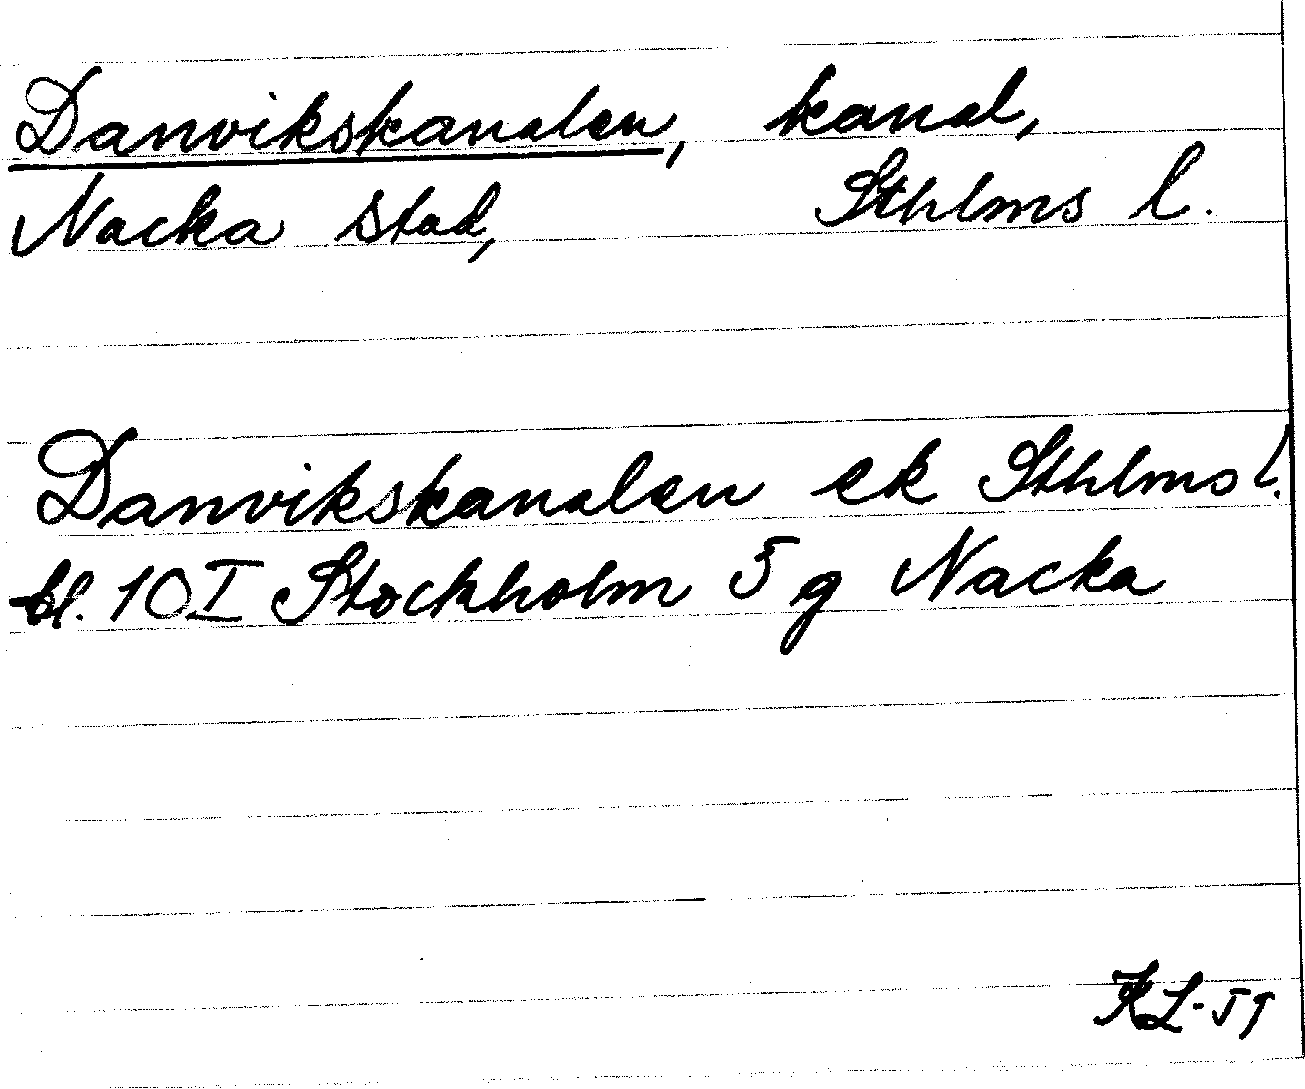 Danvikskanalen, kanal,
Nacka stad, Sthlms l.
Danvikskanalen ek Sthlms l.
bl. 10 I Stockholm 5 g Nacka